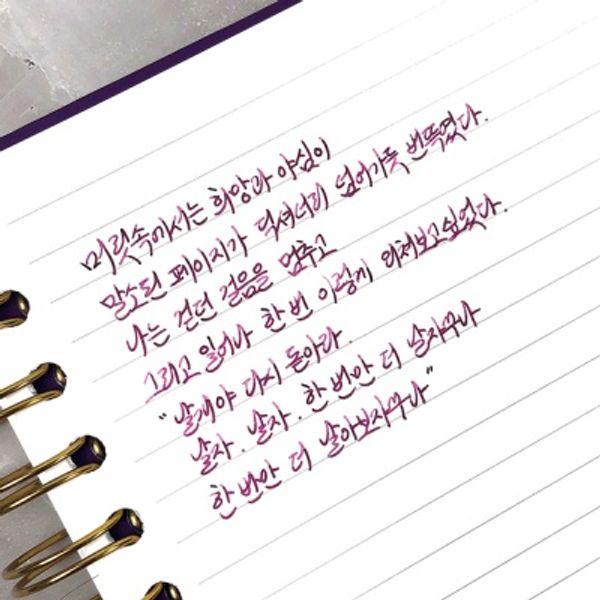 머릿속에서는 희망과 야심이
말소된 페이지가 딕셔너리 넘어가듯 번뜩였다.
나는 걷던 걸음을 멈추고
그리고 일어나 한 번 이렇게 외쳐보고 싶었다.
"날개야 다시 돋아라.
날자. 날자. 한 번만 더 날자꾸나
한 번만 더 날아보자꾸나"